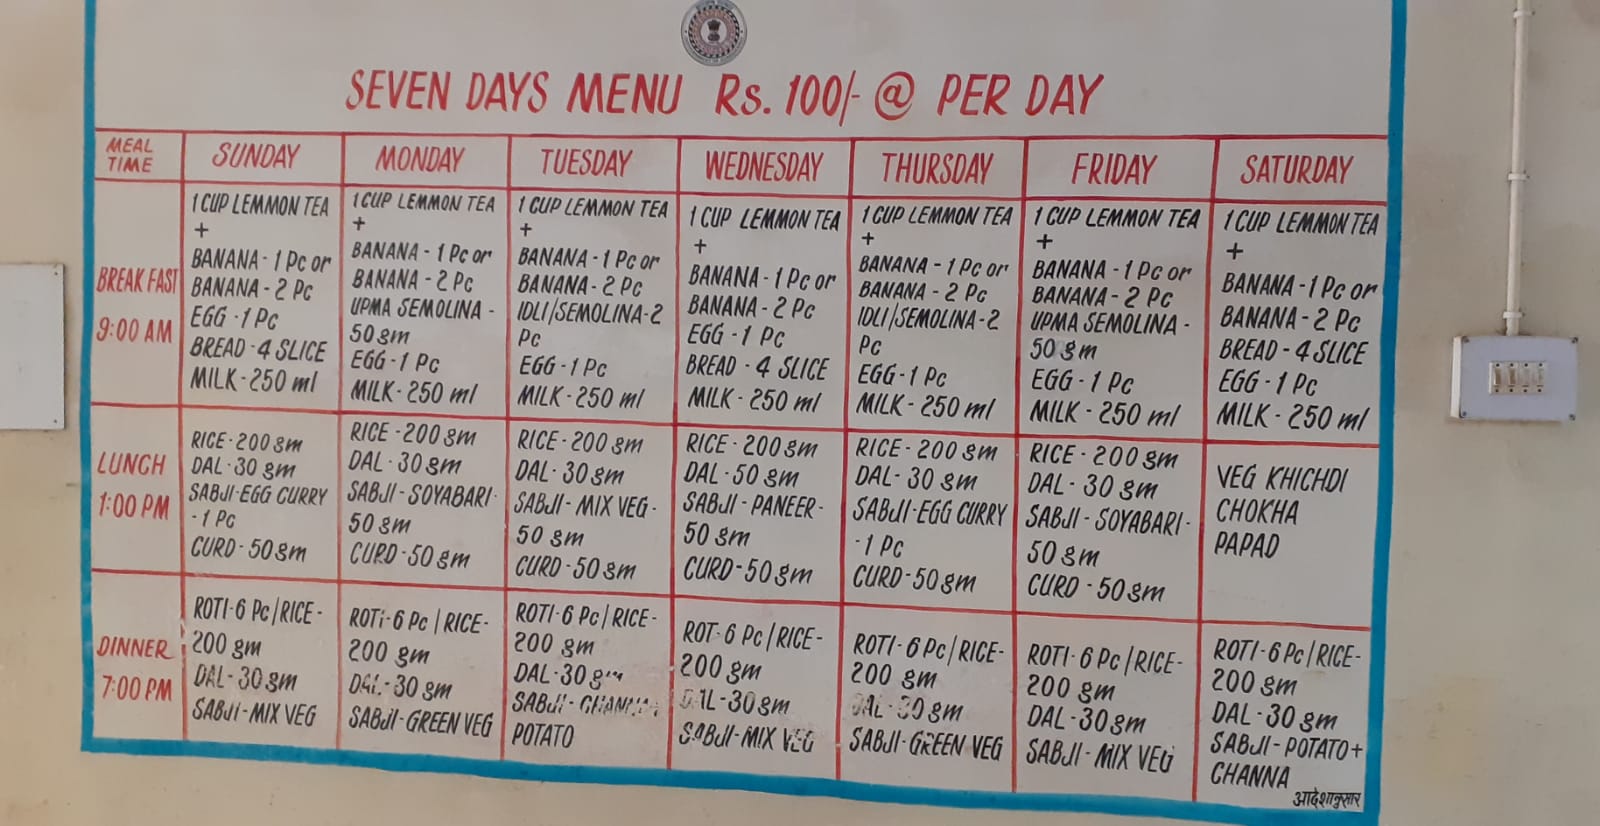 SEVEN DAYS MENU Rs. 100/- @ PER DAY
MEAL TIME SUNDAY MONDAY TUESDAY WEDNESDAY THURSDAY FRIDAY SATURDAY
BREAK FAST
9:00 AM
1 CUP LEMMON TEA
+
BANANA - 1 Pc or
BANANA - 2 Pc
EGG - 1 Pc
BREAD - 4 SLICE
MILK - 250 ml
1 CUP LEMMON TEA
+
BANANA - 1 Pc or
BANANA - 2 Pc
UPMA SEMOLINA -
50 gm
EGG - 1 Pc
MILK - 250 ml
1 CUP LEMMON TEA
+
BANANA - 1 Pc or
BANANA - 2 Pc
IDLI/SEMOLINA-2
Pc
EGG - 1 Pc
MILK - 250 ml
1 CUP LEMMON TEA
+
BANANA - 1 Pc or
BANANA - 2 Pc
EGG - 1 Pc
BREAD - 4 SLICE
MILK - 250 ml
1 CUP LEMMON TEA
+
BANANA - 1 Pc or
BANANA - 2 Pc
IDLI/SEMOLINA-2
Pc
EGG - 1 Pc
MILK - 250 ml
1 CUP LEMMON TEA
+
BANANA - 1 Pc or
BANANA - 2 Pc
UPMA SEMOLINA -
50 gm
EGG - 1 Pc
MILK - 250 ml
1 CUP LEMMON TEA
+
BANANA - 1 Pc or
BANANA - 2 Pc
BREAD - 4 SLICE
EGG - 1 Pc
MILK - 250 ml
LUNCH
1:00 PM
RICE - 200 gm
DAL - 30 gm
SABJI-EGG CURRY
- 1 Pc
CURD - 50 gm
RICE - 200 gm
DAL - 30 gm
SABJI - SOYABARI-
50 gm
CURD - 50 gm
RICE - 200 gm
DAL - 30 gm
SABJI - MIX VEG -
50 gm
CURD - 50 gm
RICE - 200 gm
DAL - 50 gm
SABJI - PANEER-
50 gm
CURD - 50 gm
RICE - 200 gm
DAL - 30 gm
SABJI-EGG CURRY
- 1 Pc
CURD - 50 gm
RICE - 200 gm
DAL - 30 gm
SABJI - SOYABARI-
50 gm
CURD - 50 gm
VEG KHICHDI
CHOKHA
PAPAD
DINNER
7:00 PM
ROTI-6 Pc/RICE-
200 gm
DAL - 30 gm
SABJI-MIX VEG
ROTi-6 Pc/RICE-
200 gm
DAL - 30 gm
SABJI-GREEN VEG
ROTI-6 Pc/RICE-
200 gm
DAL - 30 gm
SABJI - CHANNA+
POTATO
ROT-6 Pc/RICE-
200 gm
DAL - 30 gm
SABJI-MIX VEG
ROTI-6 Pc/RICE-
200 gm
DAL - 30 gm
SABJI-GREEN VEG
ROTI-6 Pc/RICE-
200 gm
DAL - 30 gm
SABJI - MIX VEG
ROTI-6 Pc/RICE-
200 gm
DAL - 30 gm
SABJI-POTATO+
CHANNA
आदेशानुसार